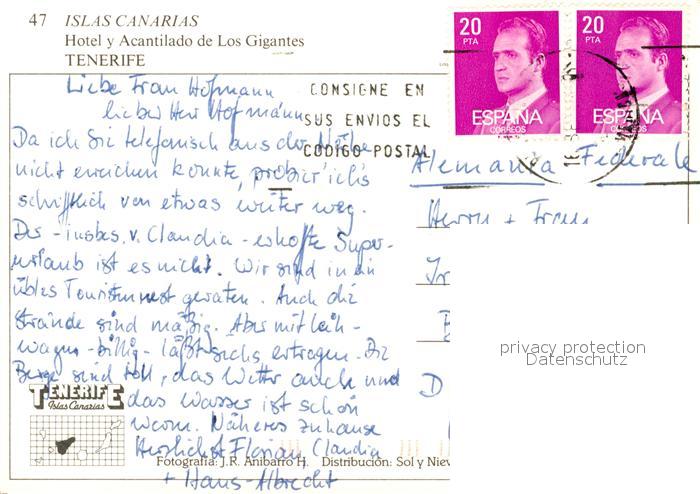 47 ISLAS CANARIAS
Hotel y Acantilado de Los Gigantes
TENERIFE
20
PTA
ESPAÑA
CORREOS
20
PTA
ESPAÑA
CORREOS
CONSIGNE EN
SUS ENVIOS EL
CODIGO POSTAL
Liebe Frau Hofmann
lieber Herr Hofmann
Da ich Sie telefonisch aus der Nähe
nicht erreichen konnte, probier ich's
schriftlich von etwas weiter weg.
Der - insbes. v. Claudia - erhoffte Super-
urlaub ist es nicht. Wir sind in ein
übles Touristennest geraten. Auch die
Strände sind mäßig. Aber mit Leih-
wagen - billig - läßt sichs ertragen. Die
Berge sind toll, das Wetter auch und
das Wasser ist schön
warm. Näheres zuhause
Herzlichst Florian, Claudia
+ Hans-Albrecht
Alemania Federale
Herrn + Frau
D
privacy protection
Datenschutz
TENERIFE
Islas Canarias
Fotografía: J.R. Anibarro H. Distribución: Sol y Niev